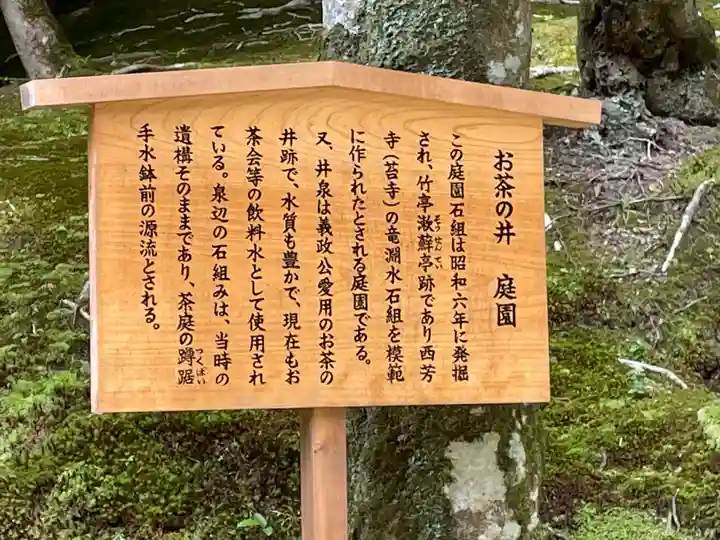 お茶の井 庭園
この庭園石組は昭和六年に発掘
され、竹亭漱蘚亭跡であり西芳
そうせんてい
寺(苔寺)の竜淵水石組を模範
に作られたとされる庭園である。
又、井泉は義政公愛用のお茶の
井跡で、水質も豊かで、現在もお
茶会等の飲料水として使用され
ている。泉辺の石組みは、当時の
遺構そのままであり、茶庭の蹲踞
つくばい
手水鉢前の源流とされる。